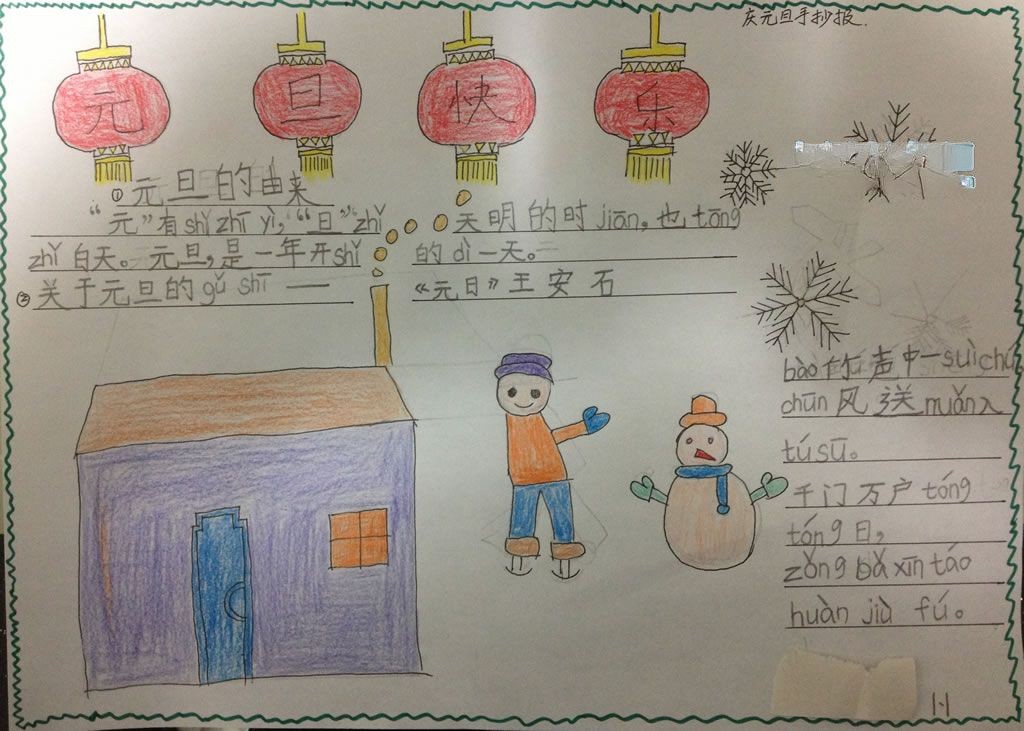 庆元旦手抄报.
元 旦 快 乐
①元旦的由来
“元”有shǐ zhī yì,“旦”zhǐ
zhǐ 白天。元旦,是一年开shǐ
②关于元旦的gǔ shī ——
天明的时jiān。也tōng
的dì一天。
《元日》王安石
bào 竹声中一suì chú
chūn 风送nuǎn入
tú sū。
千门万户tóng
tóng日,
zǒng bǎ xīn táo
huàn jiù fú。
1-1